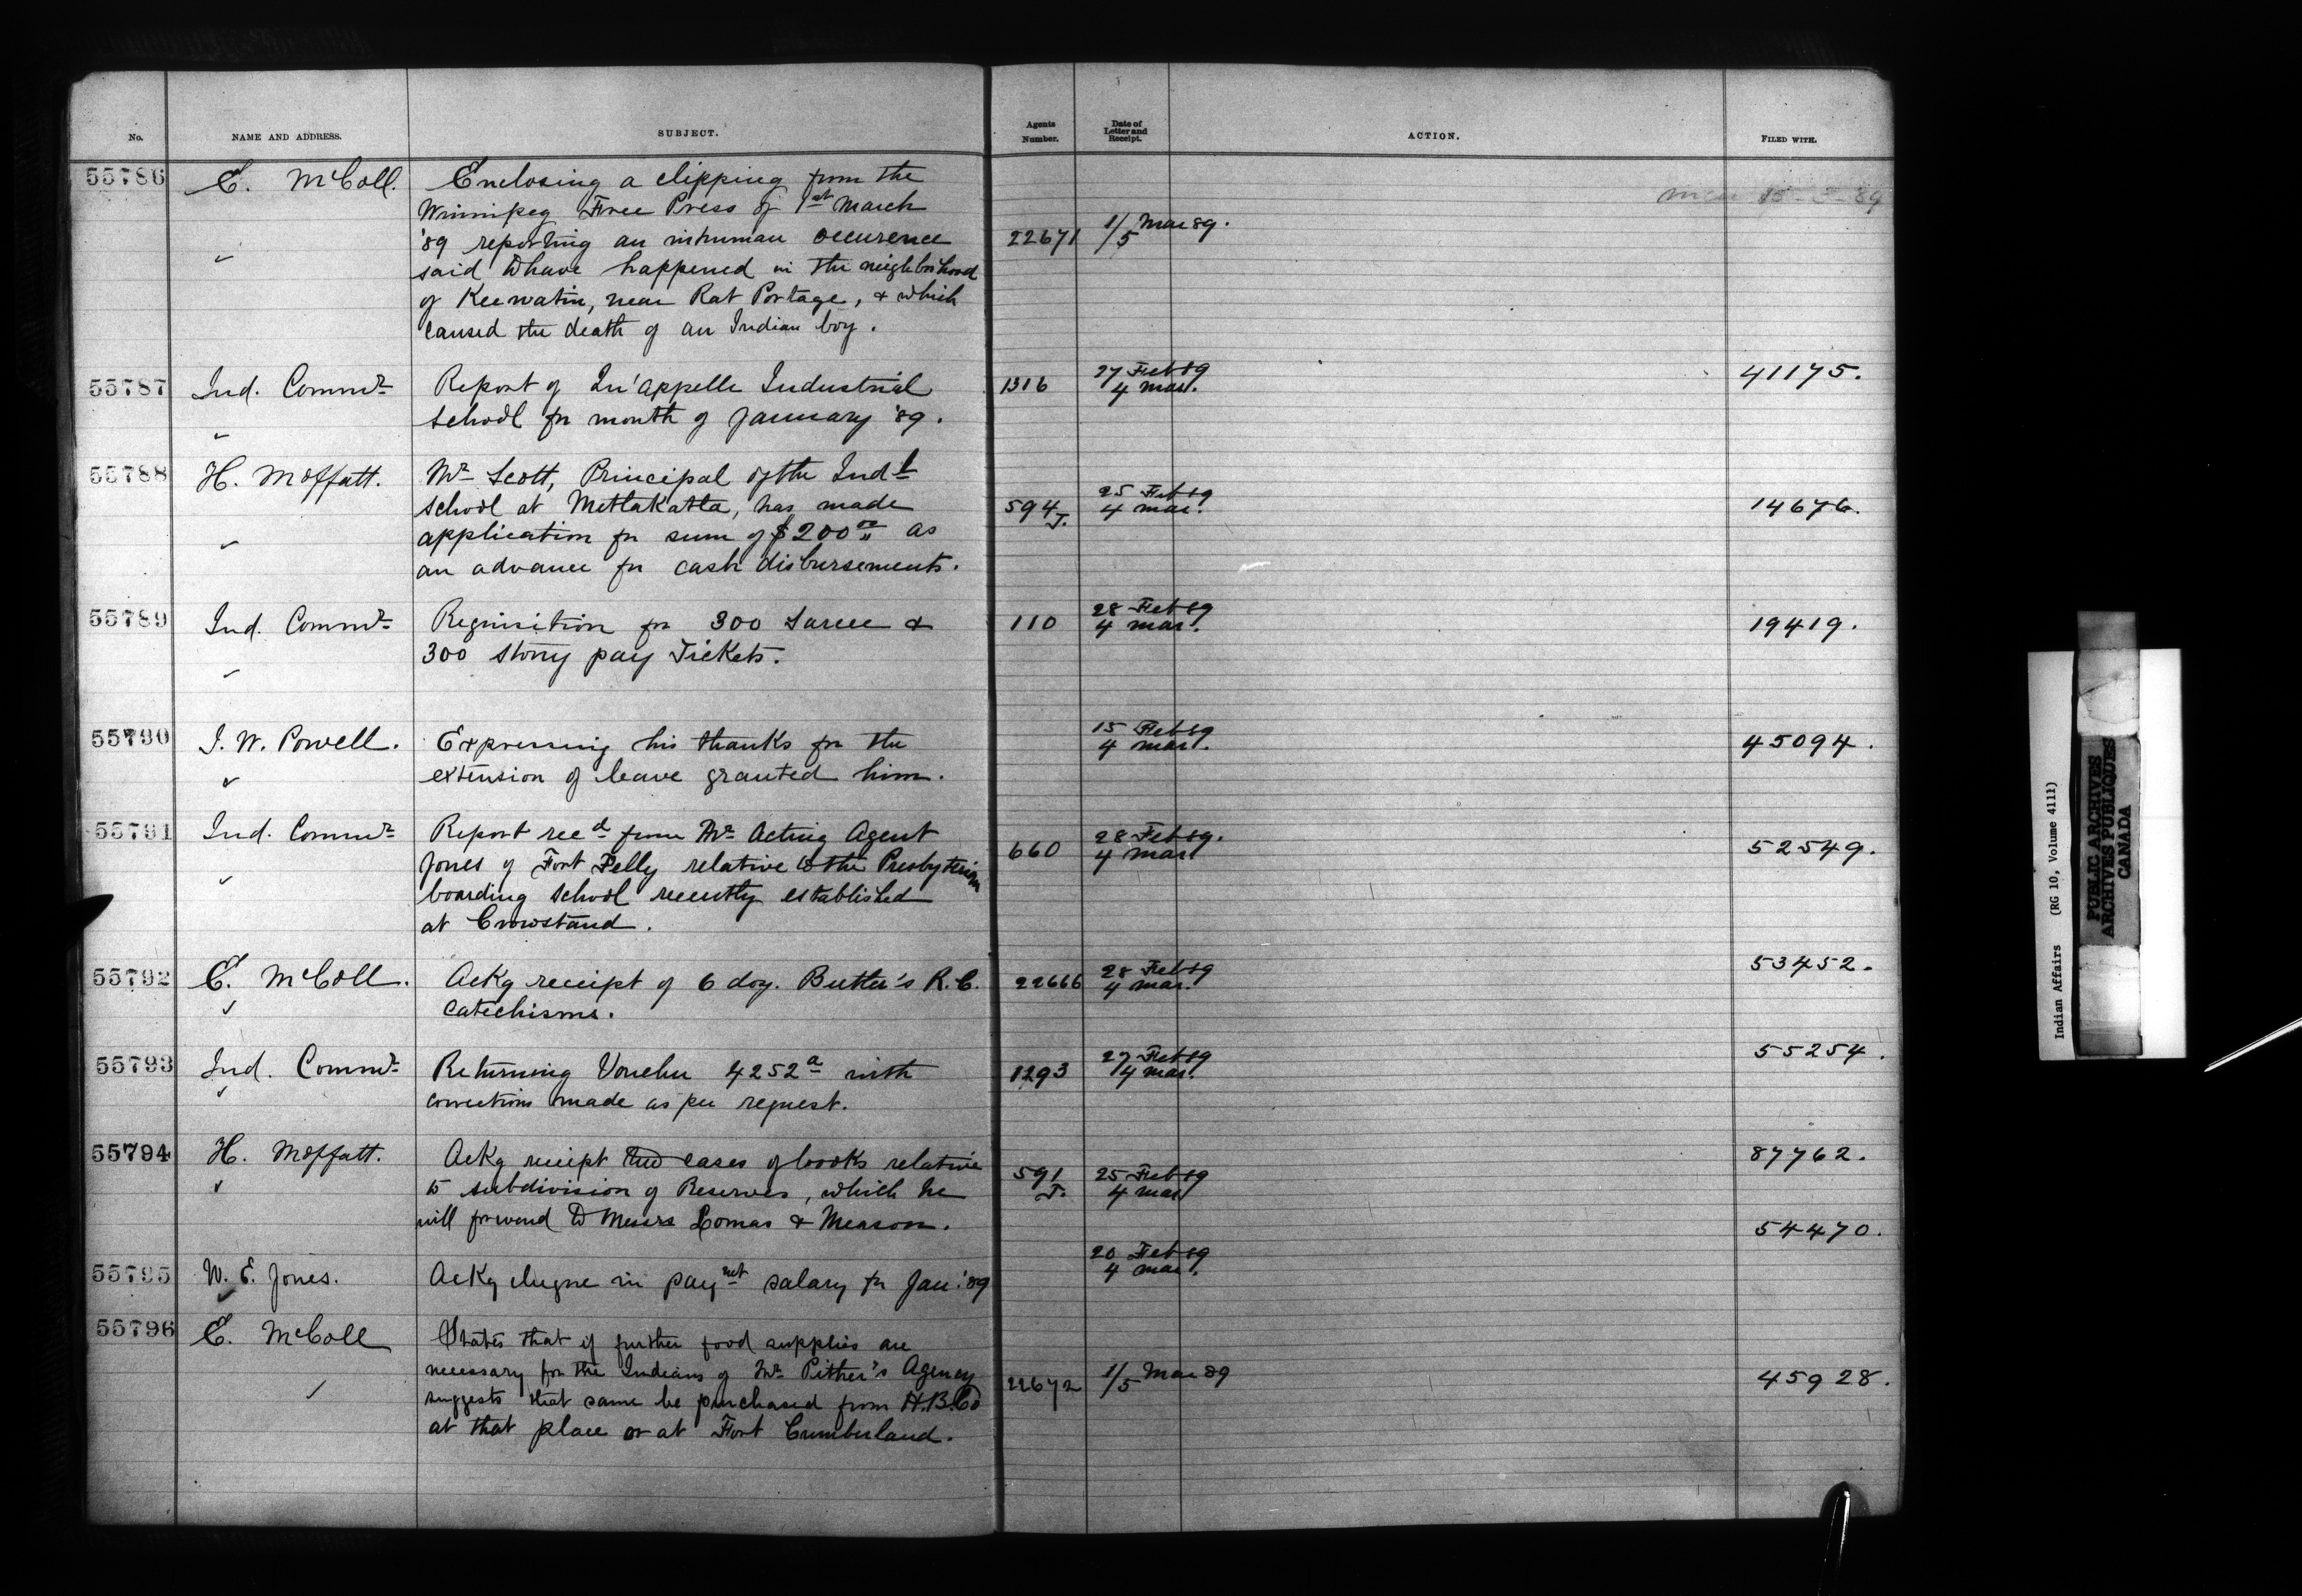 No. NAME AND ADDRESS. SUBJECT. Agents Number. Date of Letter and Receipt. ACTION. FILED WITH.
55786 E. McColl. Enclosing a clipping from the
Winnipeg Free Press of 1st March
'89 reporting an inhuman occurence 22671 1/5 Mar 89.
said to have happened in the neighborhood
of Keewatin, near Rat Portage, & which
caused the death of an Indian boy.
15-3-89
55787 Ind. Commr Report of Qu'appelle Industrial 1316 27 Feb 89 41175.
school for month of January '89. 4 Mar.
55788 H. Moffatt. Mr Scott, Principal of the Indl
school at Metlakatla, has made 594 J. 25 Feb 89 14676.
application for sum of $200 00 as 4 Mar.
an advance for cash disbursements.
55789 Ind. Commr Requisition for 300 Sarcee & 110 28 Feb 89 19419.
300 Stony pay Tickets. 4 Mar.
55790 I. W. Powell. Expressing his thanks for the 15 Feb 89 45094.
extension of leave granted him. 4 Mar.
55791 Ind. Commr Report recd from Mr Acting Agent 28 Feb 89.
Jones of Fort Pelly relative to the Presbyterian 660 4 Mar 52549.
boarding school recently established
at Crowstand.
55792 E. McColl. Ackg receipt of 6 doz. Butler's R.C. 22666 28 Feb 89 53452.
Catechisms. 4 Mar.
55793 Ind. Commr Returning Voucher 4252a with 1293 27 Feb 89 55254.
corrections made as per request. 4 Mar.
55794 H. Moffatt. Ackg receipt two cases of books relative 87762.
to subdivision of Reserves, which he 591 J. 25 Feb 89
will forward to Messrs Lomas & Meason. 4 Mar
54470.
55795 W. E. Jones. Ackg cheque in paymet salary for Jan. '89 20 Feb 89
4 Mar.
55796 E. McColl States that if further food supplies are
necessary for the Indians of Mr Pither's Agency
suggests that same be purchased from H.B.Co 22672 1/5 Mar 89 45928.
at that place or at Fort Cumberland.
Indian Affairs (RG 10, Volume 4111)
PUBLIC ARCHIVES
ARCHIVES PUBLIQUES
CANADA